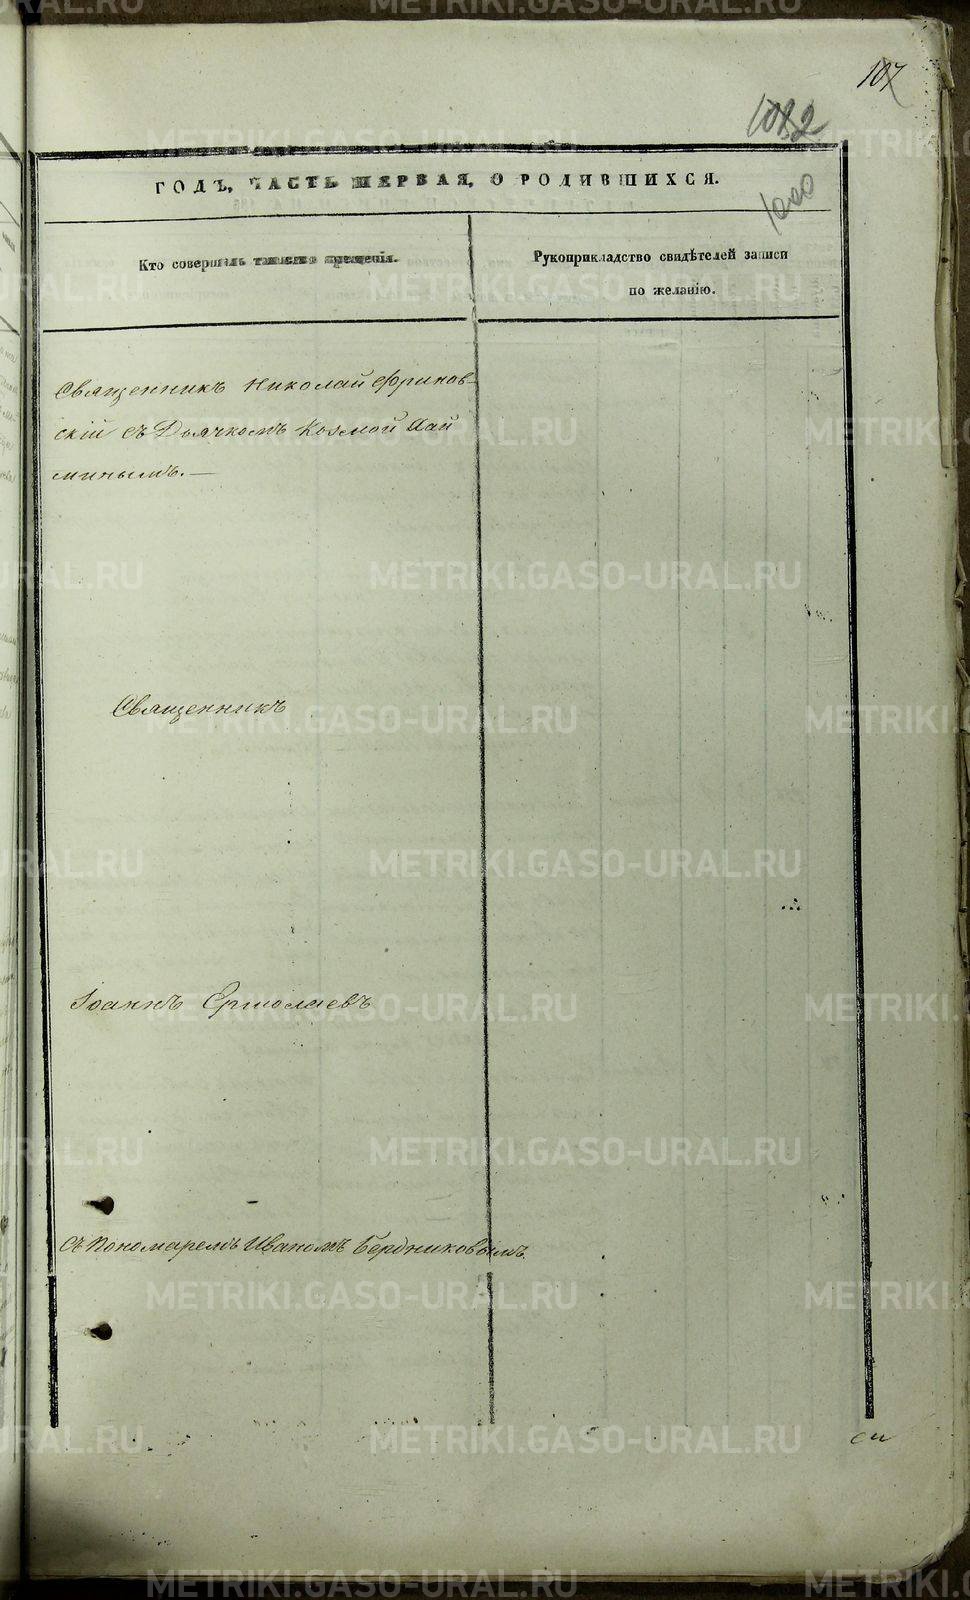 107
1000
ГОДЪ, ЧАСТЬ ПЕРВАЯ, О РОДИВШИХСЯ.
Кто совершалъ таинство крещенія.
Рукоприкладство свидѣтелей записи
по желанію.
Священникъ Николай Фринов-
скій съ Дьячкомъ Козмой
Священникъ
Іоаннъ Ермолаевъ
съ Пономаремъ Иваномъ Бердниковымъ.
METRIKI.GASO-URAL.RU